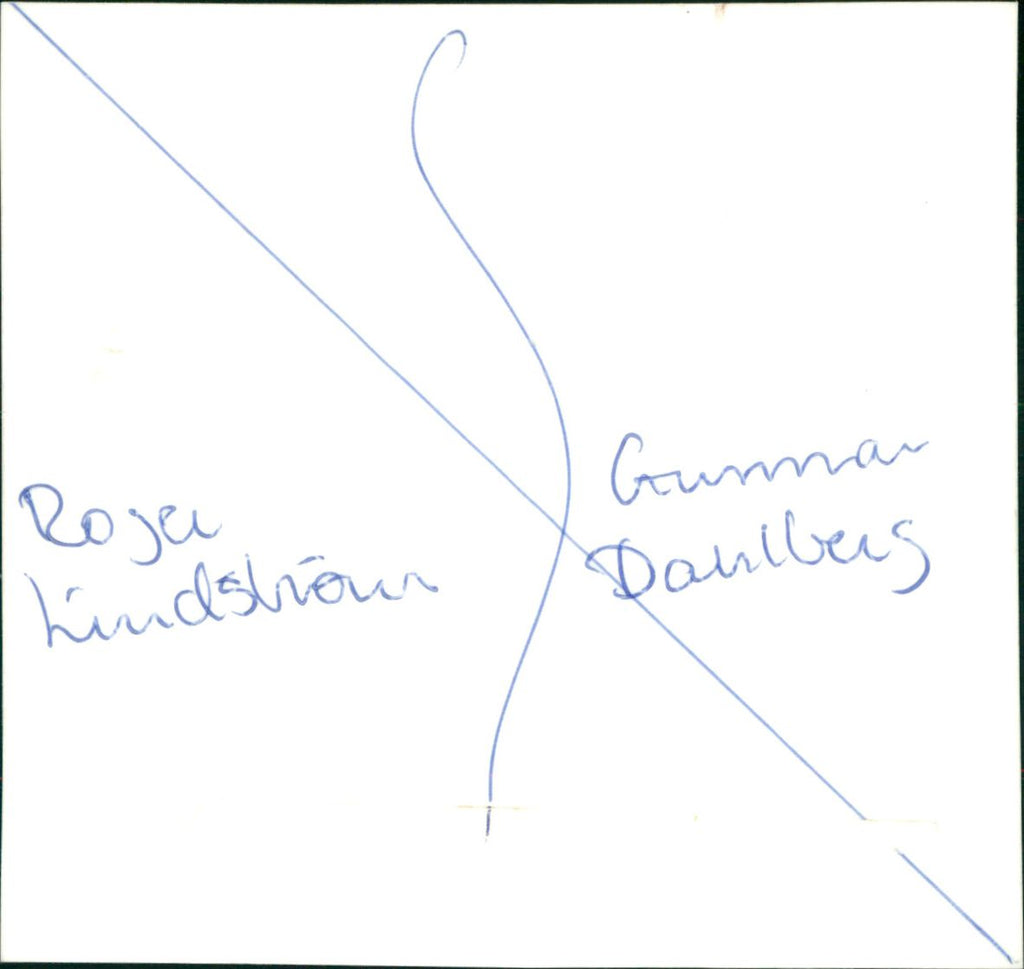 Roger
Lindström
Gunnar
Dahlberg